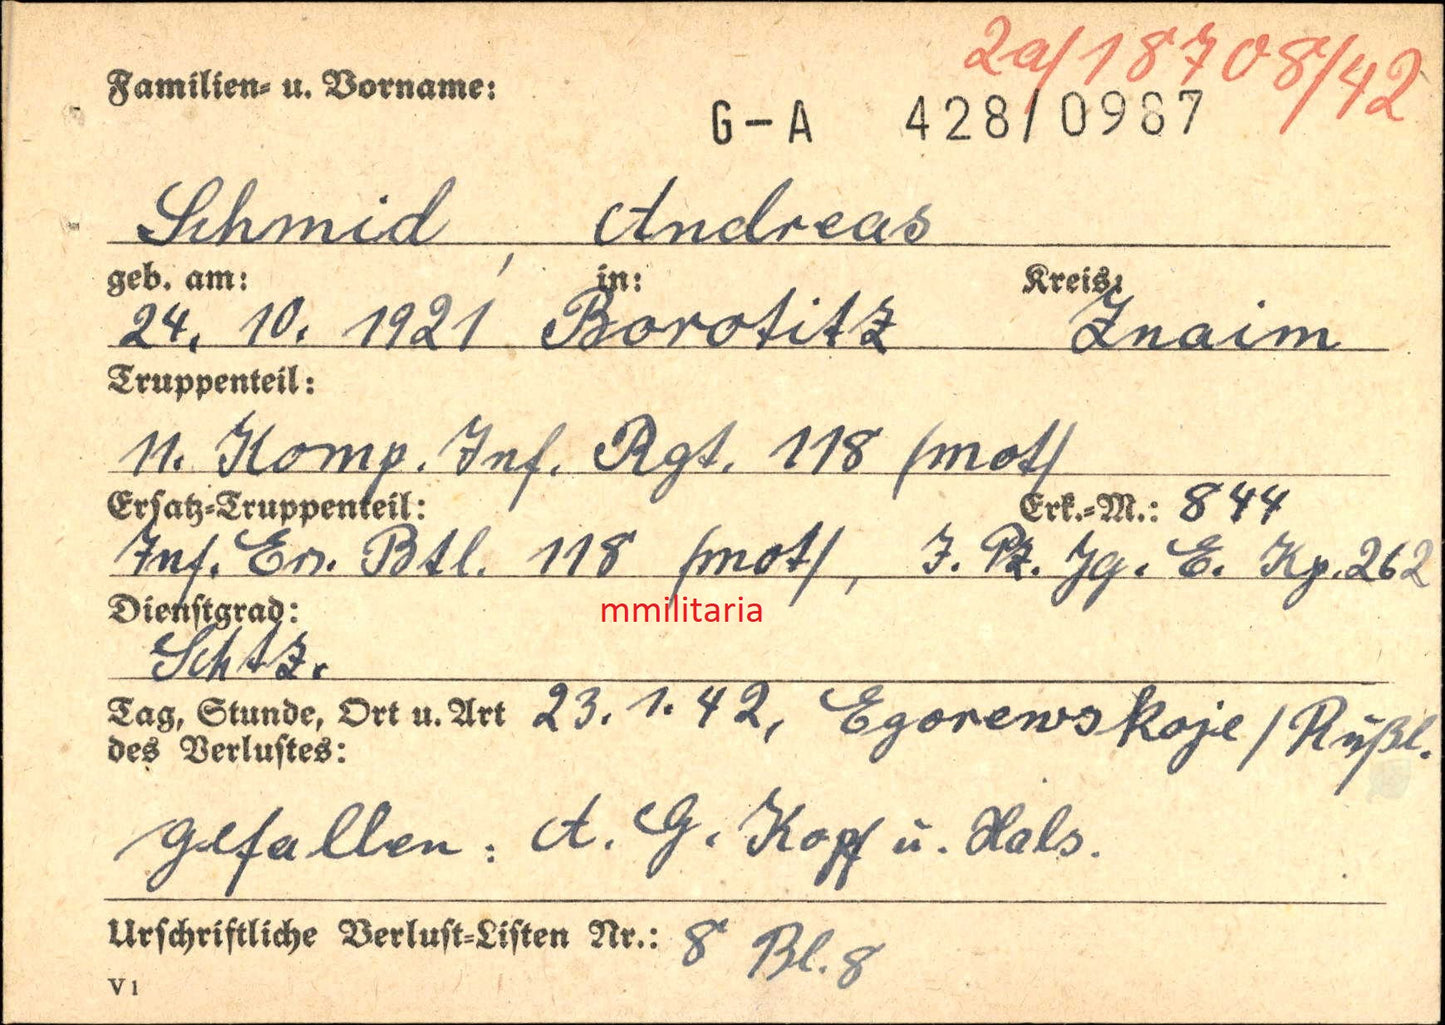 2a/18708/42
Familien- u. Vorname:
G-A 428/0987
Schmid, Andreas
geb. am: in: Kreis:
24. 10. 1921 Borotitz Znaim
Truppenteil:
11. Komp. Inf. Rgt. 118 (mot)
Ersatz-Truppenteil: Erk.-M.: 844
Inf. Ers. Btl. 118 (mot), I. Pz. Jg. E. Kp. 262
Dienstgrad:
mmilitaria
Schtz.
Tag, Stunde, Ort u. Art 23. 1. 42, Egorewskoje / Rußl.
des Verlustes:
gefallen: A. G. Kopf u. Hals.
Urschriftliche Verlust-Listen Nr.: 8 Bl. 8
V1